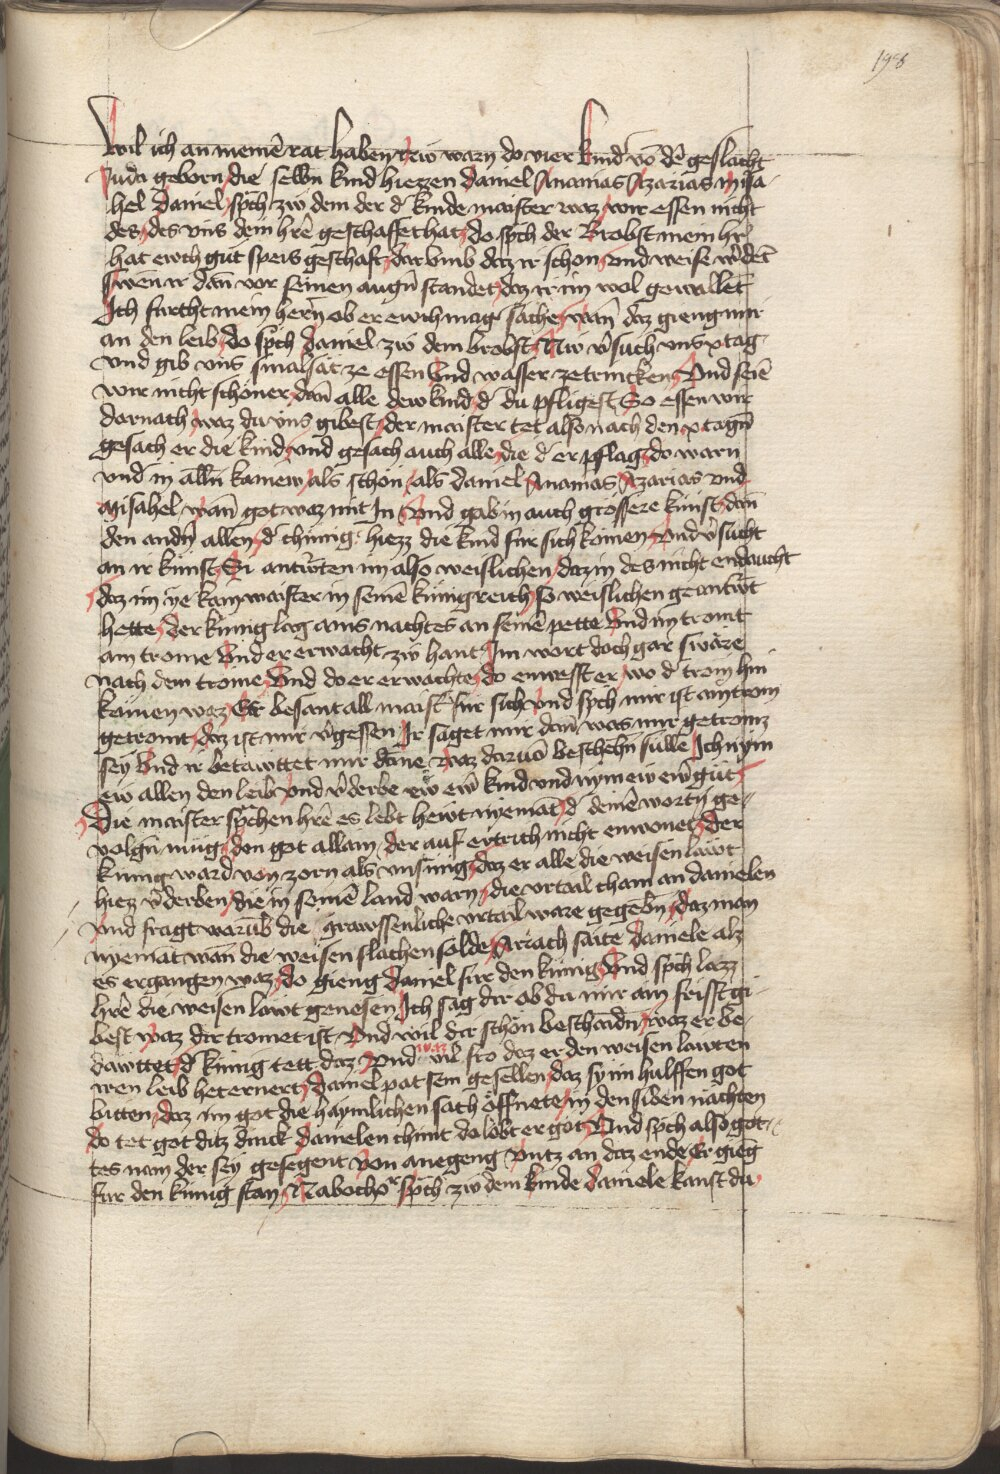 198
Wil ich an meinē rat haben Nw warn do vier kind vō dē geslächt
Juda geborn die selbn kind hiezzen daniel Ananias Azarias misa-
hel Daniel sp̄ch zw dem der d' kinde maister waz wir essen nicht
des des vns dein hrē geschaffet hat do sp̄ch der Brobst mein hr̄
hat ewch gut speis geschaft dar vmb daz ir schon vnd weise w'det
Swen ir dan̄ vor seinen augn̄ standet daz ir im wol geuallet
Ich furcht mein hern̄ ob er ewch mag' sāche wan̄ daz gieng mir
an den leib do sp̄ch daniel zw dem brobst Nw v'such vns x tag
vnd gib vns smalsät ze essen Vnd wasser ze trincken Vnd sein̄
wir nicht schöner dan̄ alle dew kind d' du pfligest So essen wir
darnach waz du vns gibest der maister tet also nach den x tagn̄
gesach er die kind vnd gesach auch alle die d' er pflag do warn
vnd' in alln̄ kainew als schön als daniel Ananias Azarias vnd
Misahel wan̄ got waz mit In Vnd gab in auch grössere kunst dan̄
den andn̄ allen d' chunig hiezz die kind fur sich komen Vnd v'sucht
an ir kunst Si antw'ten im also weislichen daz in des nicht endaucht
daz im ye kain maister in seinē kunigreich so weislichen geantw't
hette der kunig lag ains nachtes an seinē pette Vnd im tromt
ain trome Vnd er erwacht zw hant Im wart doch gar swäre
nach dem trome Vnd do er erwachte do enwesst er wo d' trom hin
komen waz Er besant all maist' fur sich vnd sp̄ch mir ist ain trom
getromt daz ist mir v'gessen Ir saget mir dan̄ was mir getromt
sey Vnd ir betawttet mir dan̄e waz daruō beschehn̄ sulle Ich nym
ew allen den leib vnd v'derbe ew ewr̄ kind vnd nym ew ewr̄ gut
Die maister sp̄chen hrē es lebt hewt nyemāt d' deinē wortn̄ ge-
volgn̄ mug don got allain der auf ertrich nicht enwonet der
kunig ward von zorn als vnsinnig daz er alle die weisen läwt
hiez v'derben die in seinē land warn die vrtail cham an danielen
vnd fragt warūb die grawssenliche vrtail ware gegebn̄ daz man
nyemāt wan̄ die weisen slachen solde Ariach saite daniele alz
es ergangen waz do gieng daniel fur den kunig Vnd sp̄ch lazz
hrē die weisen läwt genesen Ich sag dir ob du mir ain frisst gi-
best waz dir tromet ist Vnd wil dir schön beschaidn̄ waz er be-
dawttet d' kunig tett daz Vnd waz vil fro daz er den weisen lawten
wen leib het ernert daniel pat sein gesellen daz sy im hulffen got
bitten daz im got die haymlichen sach öffnete in den siben nächten
do tet got ditz dinck danielen chunt do lobt er got Vnd sp̄ch also got-
tes nam der sey gesegent von anegeng vntz an daz ende Er gieng
fur den kunig stan Nabochor sp̄ch zw dem kinde daniele kanst du